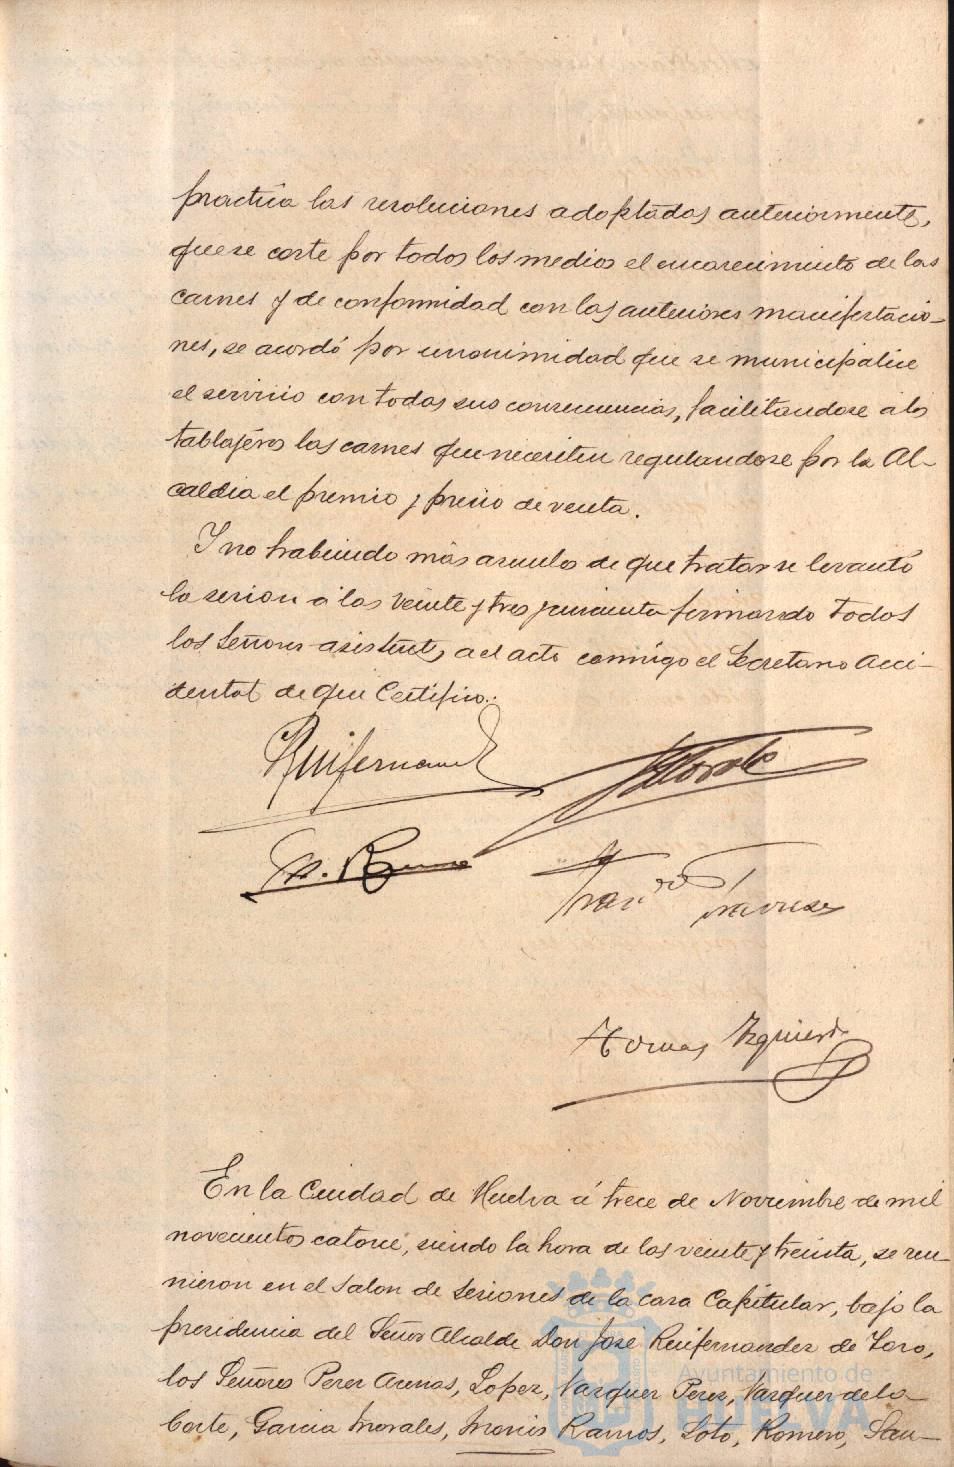 practica las resoluciones adoptadas anteriormente,
que se corte por todos los medios el encarecimiento de las
carnes y de conformidad con las anteriores manifestacio-
nes, se acordó por unanimidad que se municipalice
el servicio con todas sus consecuencias, facilitandose á los
tablajeros las carnes que necesiten regulandose por la Al-
caldia el premio y precio de venta.
Y no habiendo más asuntos de que tratar se levantó
la sesion á las veinte y tres y cincuenta firmando todos
los Señores asistentes al acto conmigo el Secretario Acci-
dental de que Certifico.
Ruifernandez
Morales
M. R
Tomas Izquierdo
En la Ciudad de Huelva á trece de Noviembre de mil
novecientos catorce, siendo la hora de las veinte y treinta, se reu-
nieron en el salon de sesiones de la casa Capitular, bajo la
presidencia del Señor Alcalde Don José Ruifernandez de Toro,
los Señores Perez Arenas, Lopez, Vazquez Perez, Vazquez de la
Corte, Garcia Morales, Monis Ramos, Soto, Romero, San-
Ayuntamiento de
HUELVA